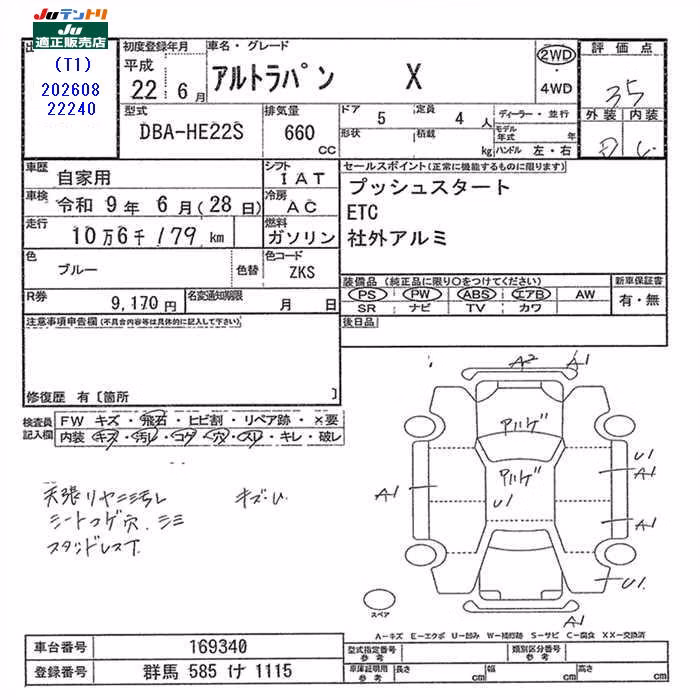 JUテントリ
JU
適正販売店
(T1)
202608
22240
初度登録年月
平成
22年6月
車名・グレード
アルトラパン X
2WD
・
4WD
評価点
35
外装 内装
D C
型式
DBA-HE22S
排気量
660
CC
ドア 5 定員 4人
形状 積載 kg
ディーラー・並行
モデル年式 年
ハンドル 左・右
車歴
自家用
シフト
IAT
車検
令和 9年 6月(28日)
冷房
AC
走行
10万6千179km
燃料
ガソリン
色
ブルー
色替
色コード
ZKS
R券
9,170円
名変通知期限
月 日
セールスポイント(正常に機能するものに限ります)
プッシュスタート
ETC
社外アルミ
装備品(純正品に限り○をつけてください)
新車保証書
PS PW ABS エアB AW
有・無
SR ナビ TV カワ
後日品
注意事項申告欄(不具合内容等は具体的に記入して下さい)
修復歴 有〔箇所 〕
検査員
記入欄
FW キズ・飛石・ヒビ割・リペア跡・×要
内装・キズ・汚レ・コゲ・穴・スレ・キレ・破レ
天張リヤニ汚レ キズ・U
シートコゲ穴、シミ
スタッドレス下
A2 A1
ハゲ
ハゲ
U1
A1
U1
A1
A1
U1
A1
スペア
A-キズ E-エクボ U-凹み W-補修跡 S-サビ C-腐食 XX-交換済
車台番号
169340
登録番号
群馬 585 け 1115
型式指定番号
参考
類別区分番号
参考
車庫証明用
参考
長さ cm 幅 cm 高さ cm